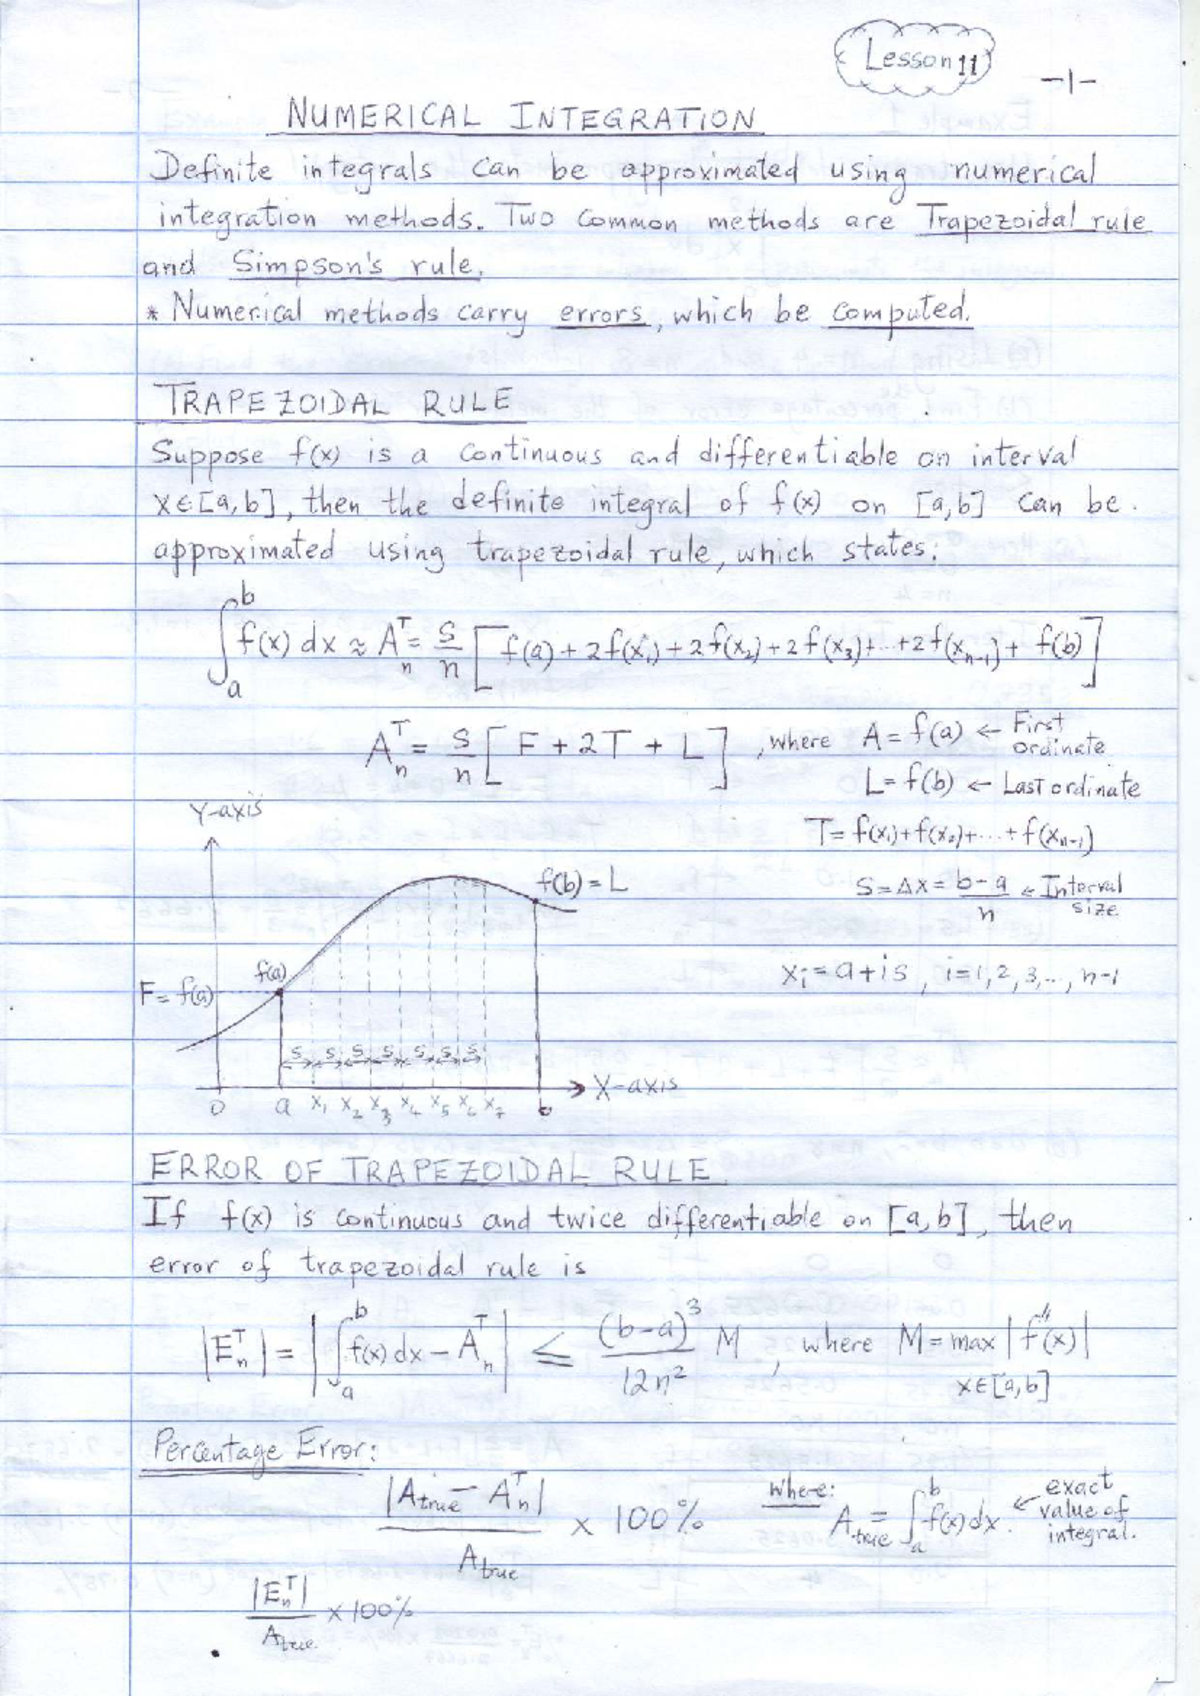 Lesson 11
-1-
NUMERICAL INTEGRATION
Definite integrals can be approximated using numerical
integration methods. Two common methods are Trapezoidal rule
and Simpson's rule.
* Numerical methods carry errors, which be computed.
TRAPEZOIDAL RULE
Suppose f(x) is a continuous and differentiable on interval
x∈[a,b], then the definite integral of f(x) on [a,b] can be.
approximated using trapezoidal rule, which states:
∫_a^b f(x) dx ≈ A_n^T = s/n [f(a) + 2f(x₁) + 2f(x₂) + 2f(x₃) + ... + 2f(x_{n-1}) + f(b)]
A_n^T = s/n [F + 2T + L], where A = f(a) ← First ordinate
L = f(b) ← Last ordinate
T = f(x₁) + f(x₂) + ... + f(x_{n-1})
S = Δx = (b-a)/n ← Interval size
x_i = a + is, i = 1, 2, 3, ..., n-1
Y-axis
f(b) = L
f(a)
F = f(a)
S S S S S S S
0 a x₁ x₂ x₃ x₄ x₅ x₆ x₇ b
X-axis
ERROR OF TRAPEZOIDAL RULE
If f(x) is continuous and twice differentiable on [a,b], then
error of trapezoidal rule is
|E_n^T| = |∫_a^b f(x) dx - A_n^T| ≤ (b-a)³/12n² M, where M = max |f''(x)|
x∈[a,b]
Percentage Error:
|A_true - A_n^T| / A_true x 100% where: A_true = ∫_a^b f(x) dx. ← exact value of integral.
|E_n^T| / A_true x 100%